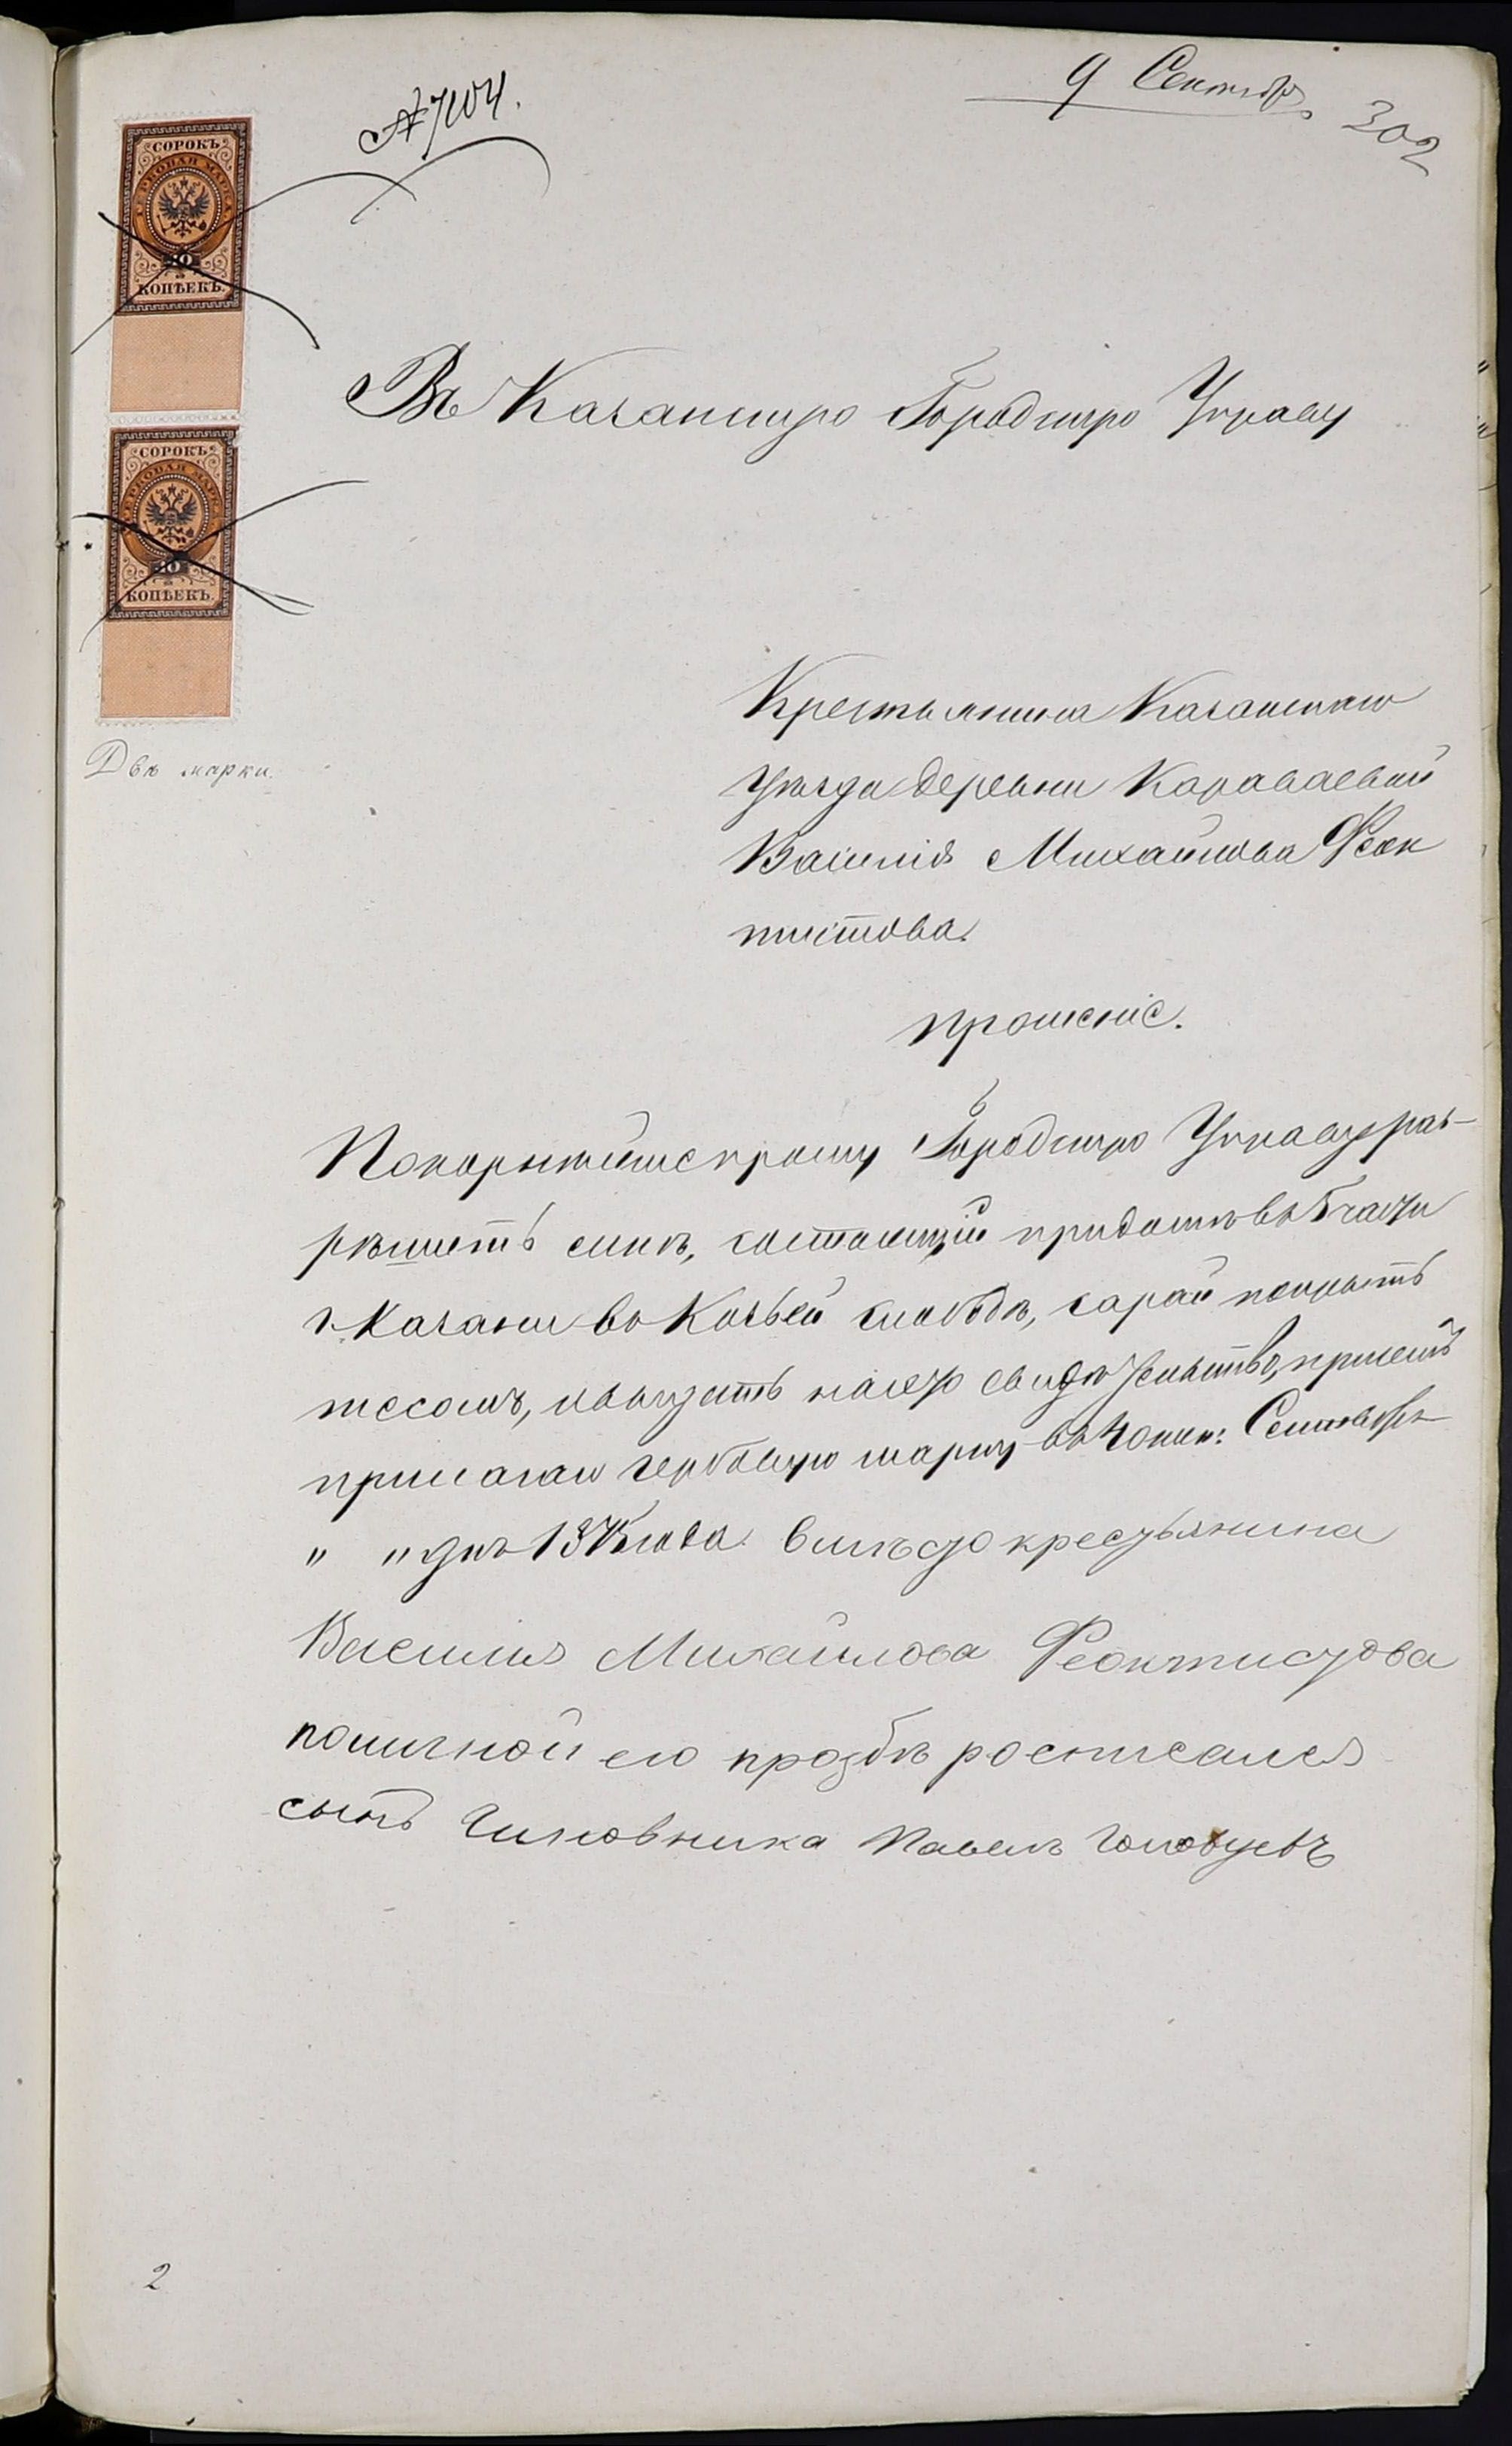 9 Сентябр
302
№ 7104.
СОРОКЪ
ГЕРБОВАЯ МАРКА
40
КОПѢЕКЪ.
Въ Казанскую Городскую Управу
СОРОКЪ
ГЕРБОВАЯ МАРКА
40
КОПѢЕКЪ.
Двѣ марки.
Крестьянина Казанскаго
Уѣзда деревни Караваевой
Василія Михайлова Феок
тистова.
прошеніе.
Покорнѣйше прошу Городскую Управу раз-
рѣшить мнѣ, состоящій при домѣ въ 5 части
г. Казани въ Козьей слободѣ, сарай покрыть
тесомъ, и выдать на это свидѣтельство, при семъ
прилагаю гербовую марку въ 40 коп: Сентября
" " дня 1875 года. вмѣсто крестьянина
Василия Михайлова Феоктистова
по личной его прозбѣ росписался
сынъ Чиновника Павелъ
2